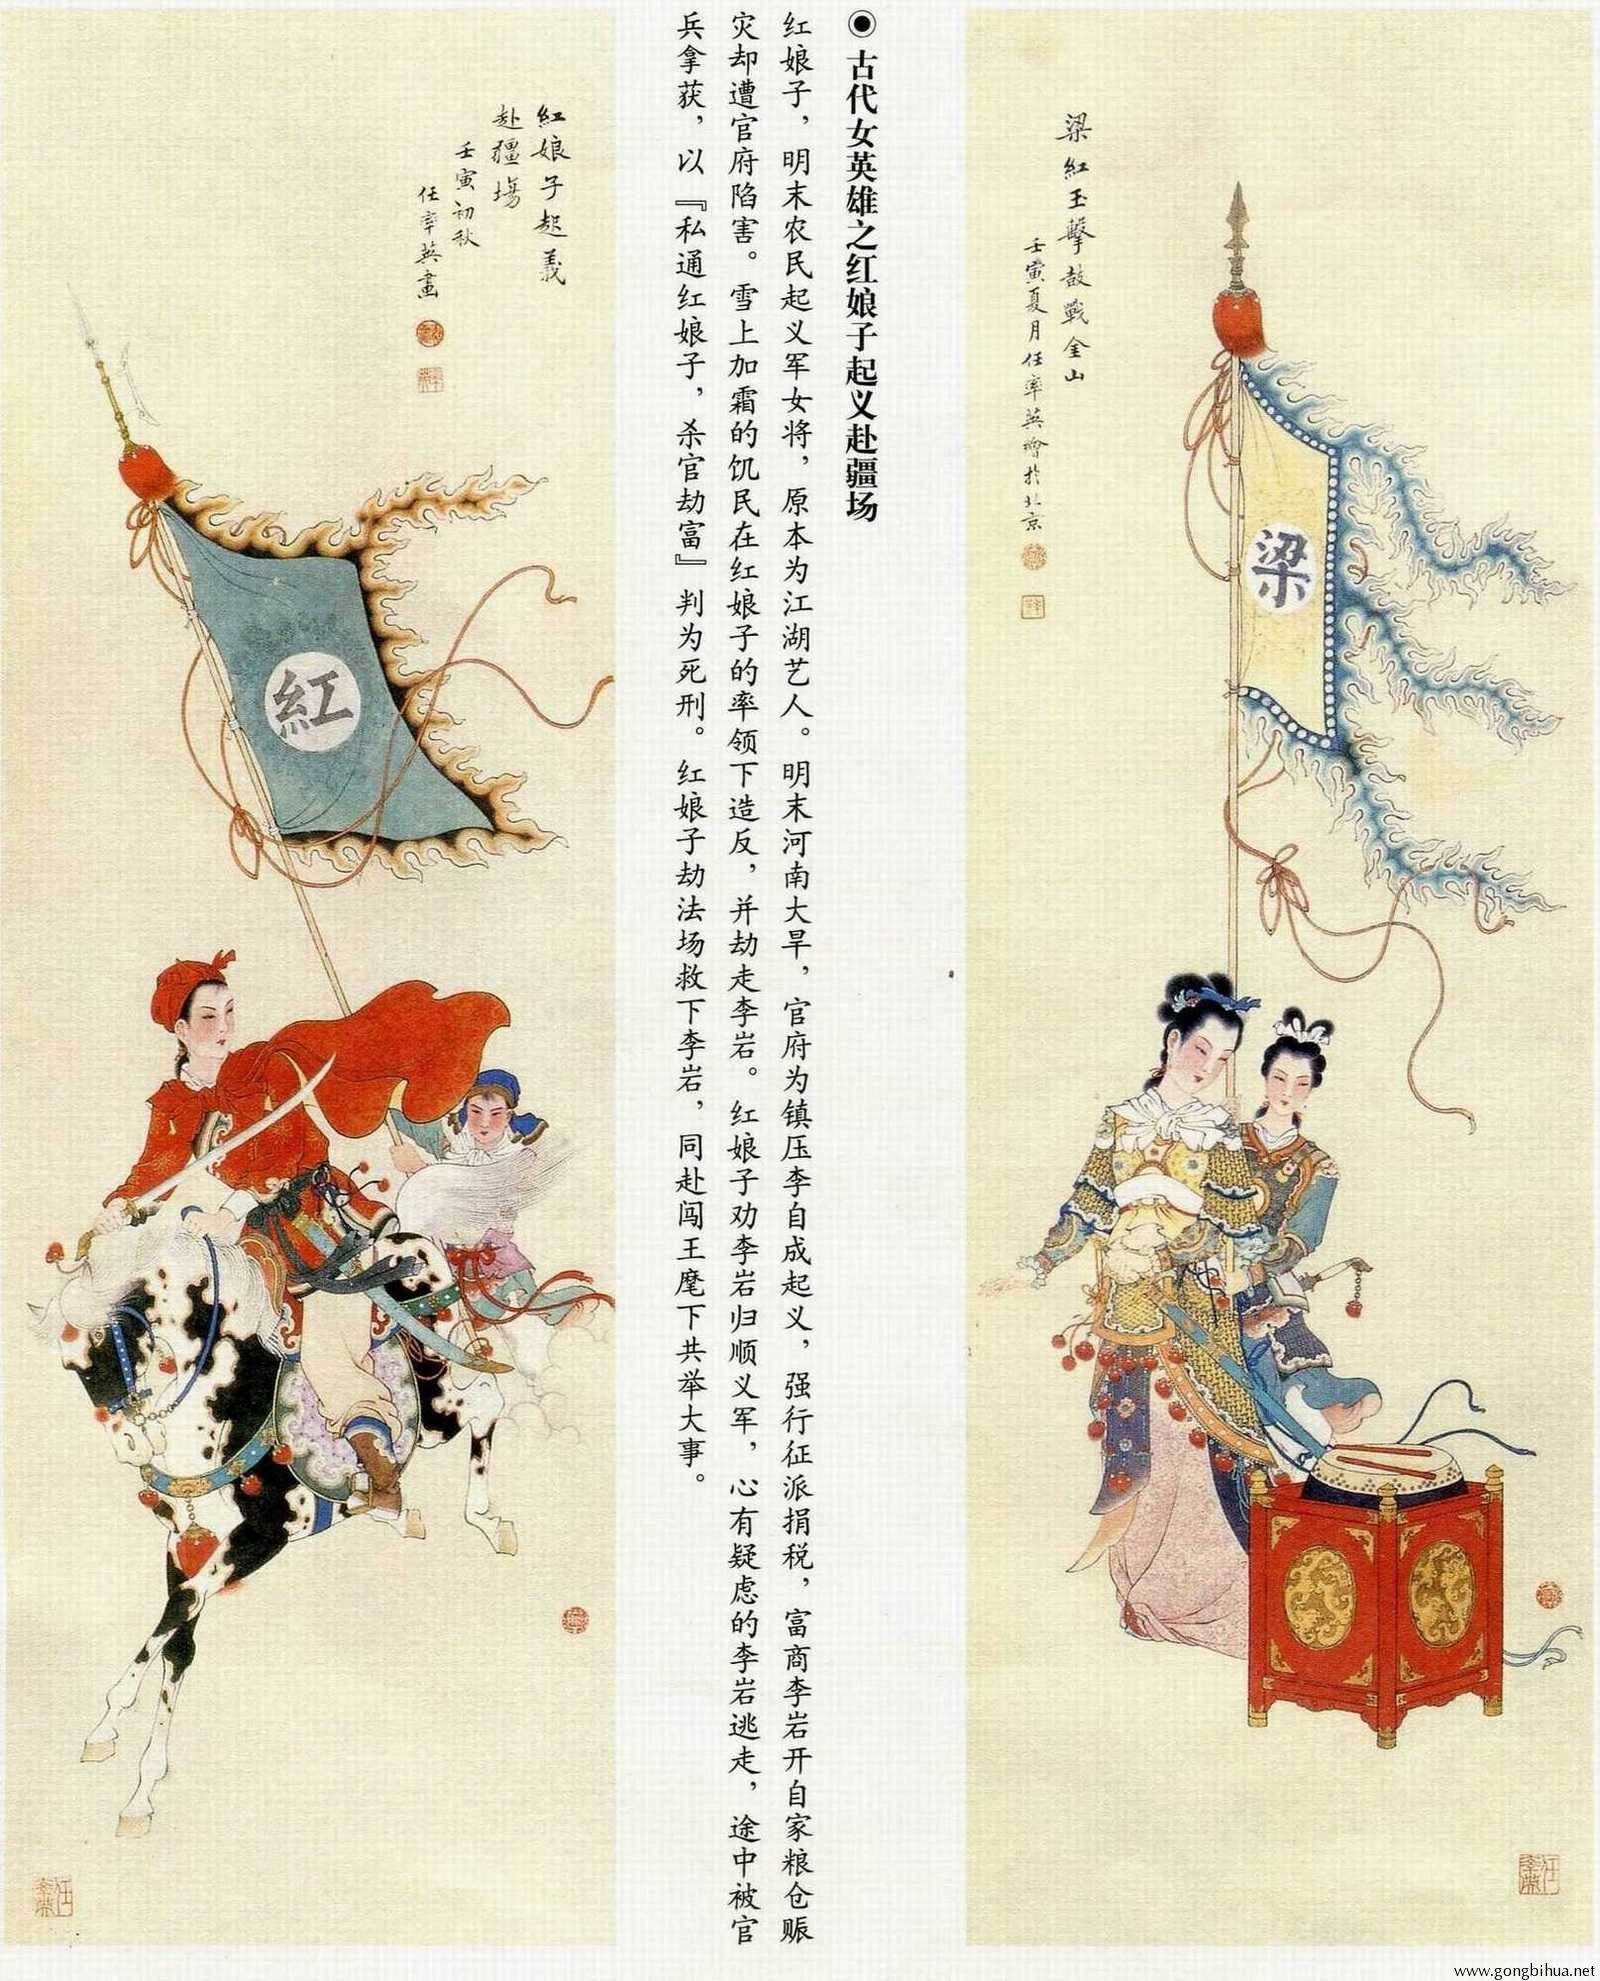 梁紅玉擊鼓戰金山
壬寅夏月任率英繪於北京
梁
◉ 古代女英雄之红娘子起义赴疆场
红娘子，明末农民起义军女将，原本为江湖艺人。明末河南大旱，官府为镇压李自成起义，强行征派捐税，富商李岩开自家粮仓赈
灾却遭官府陷害。雪上加霜的饥民在红娘子的率领下造反，并劫走李岩。红娘子劝李岩归顺义军，心有疑虑的李岩逃走，途中被官
兵拿获，以『私通红娘子，杀官劫富』判为死刑。红娘子劫法场救下李岩，同赴闯王麾下共举大事。
紅娘子起義
赴疆場
壬寅初秋
任率英畫
紅
www.gongbihua.net